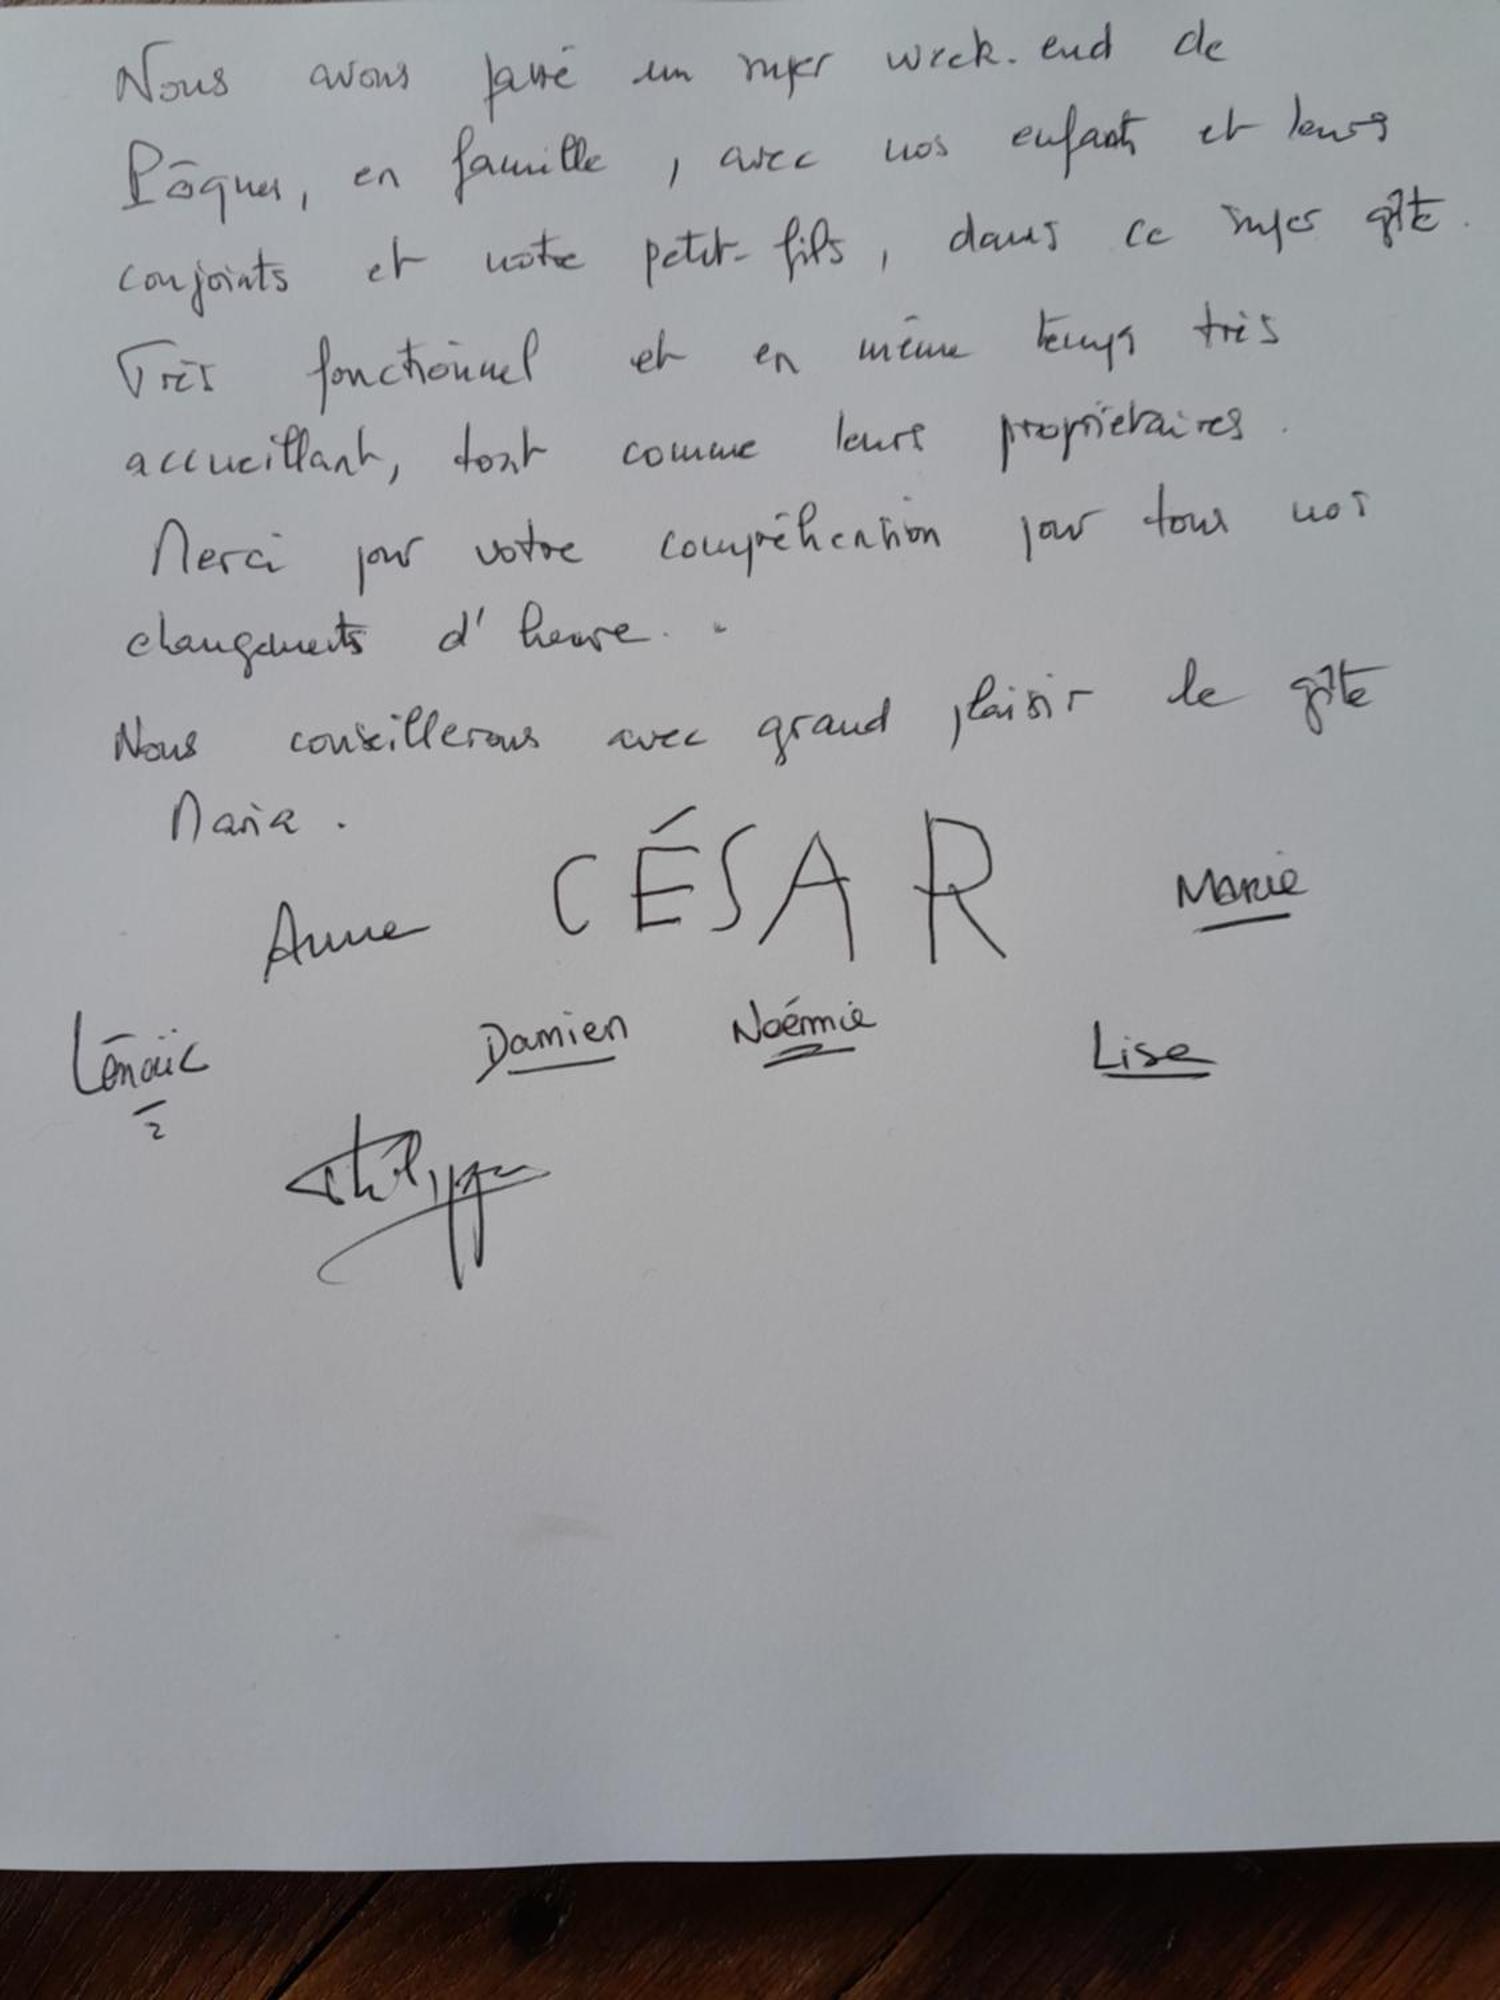 Nous avons passé un super week-end de
Pâques, en famille, avec nos enfants et leurs
conjoints et notre petit-fils, dans ce super gîte.
Très fonctionnel et en même temps très
accueillant, tout comme leurs propriétaires.
Merci pour votre compréhension pour tous nos
changements d'heure..
Nous conseillerons avec grand plaisir le gîte
Maria.
Anne CÉSAR Marie
Lénaïc Damien Noémie Lise
Philippe